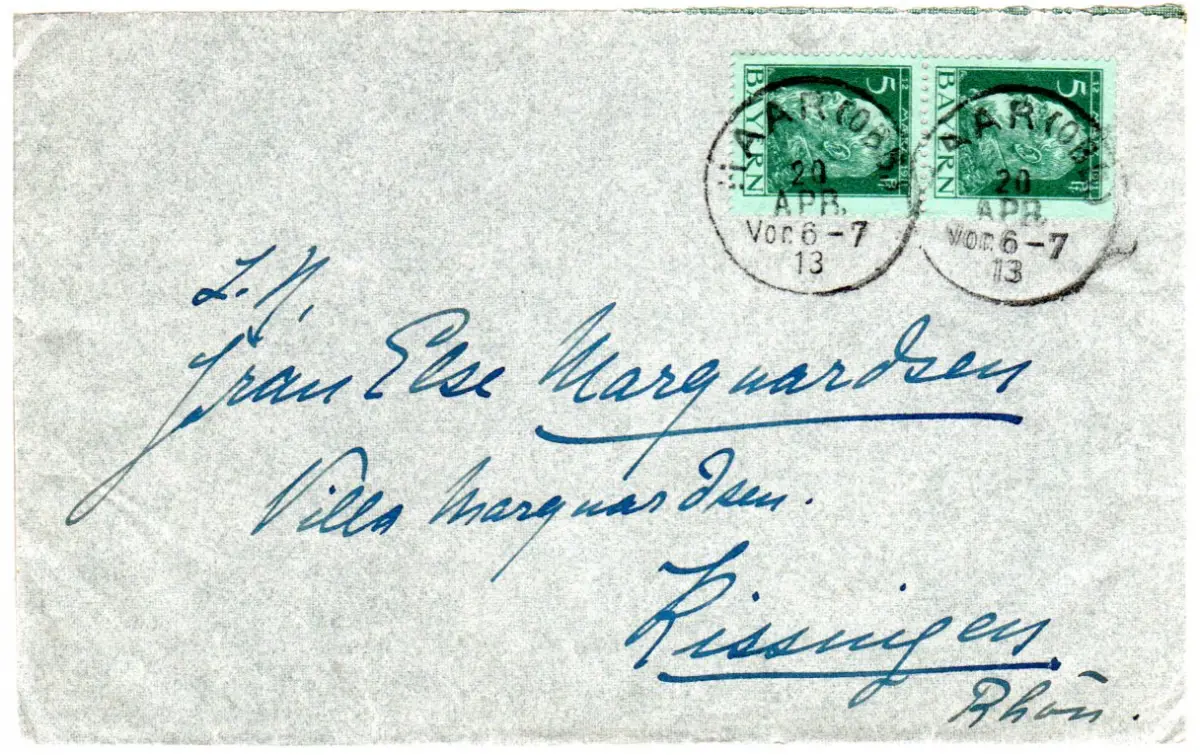 5
BAYERN
5
BAYERN
HAAR (OBB)
20
APR.
Vor. 6-7
13
AAR (OBB)
20
APR.
Vor. 6-7
13
Frau Else Marquardsen
Villa Marquardsen.
Kissingen
Rhön.